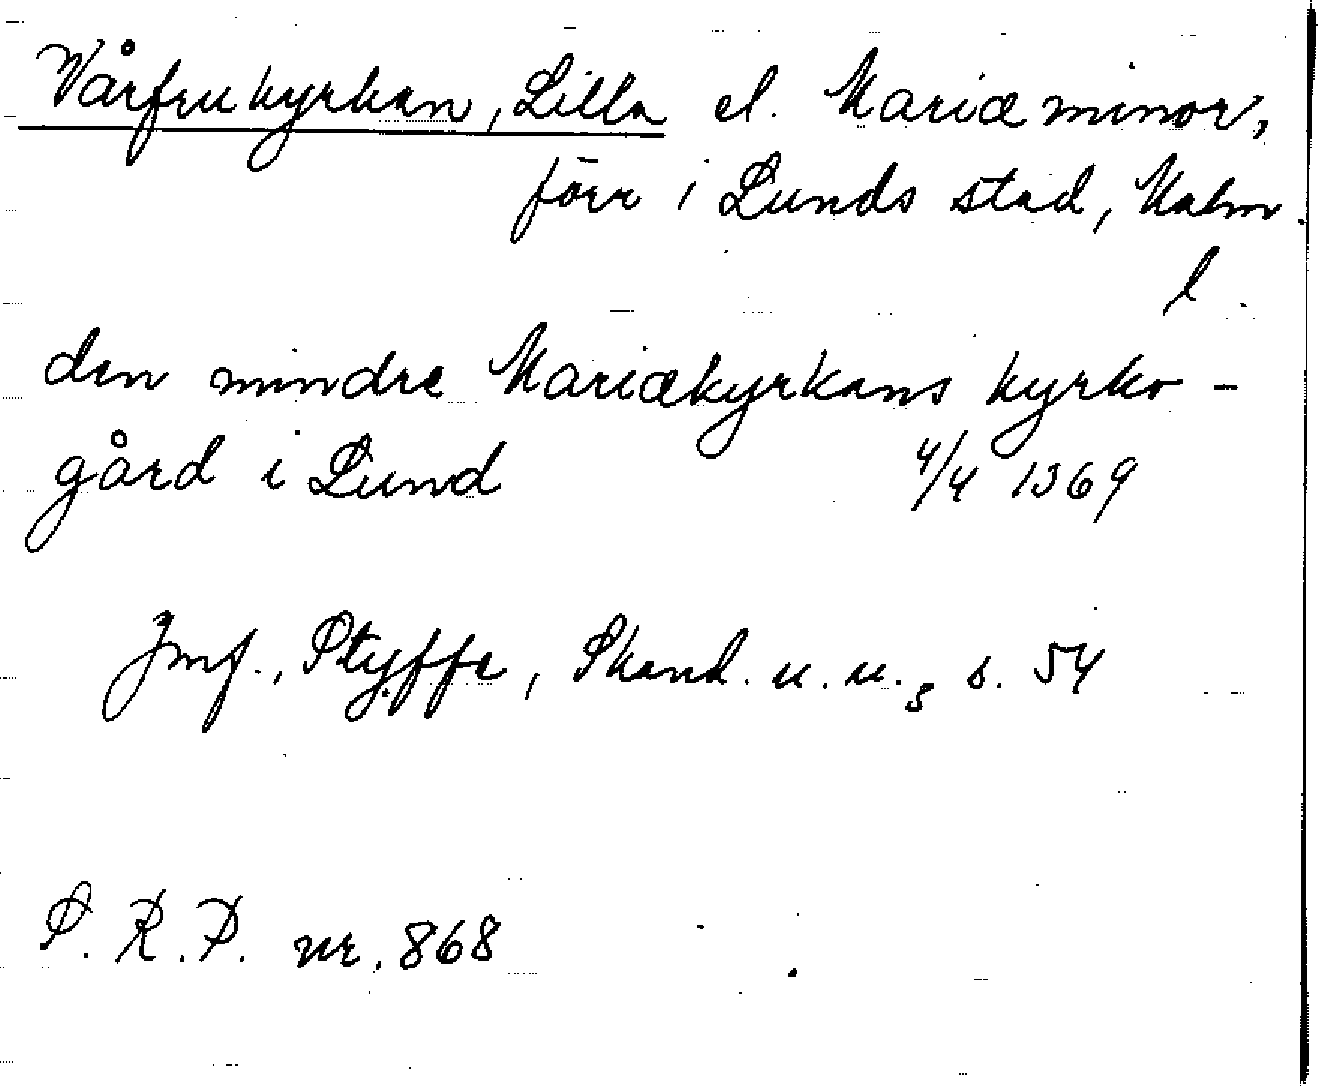 Vårfrukyrkan, Lilla el. Mariæ minor,
förr i Lunds stad, Malm.
l.
den mindre Mariækyrkans kyrko-
gård i Lund 4/4 1369
Jmf., Styffe, Skand. u. u.3 s. 54
S. R. P. nr. 868